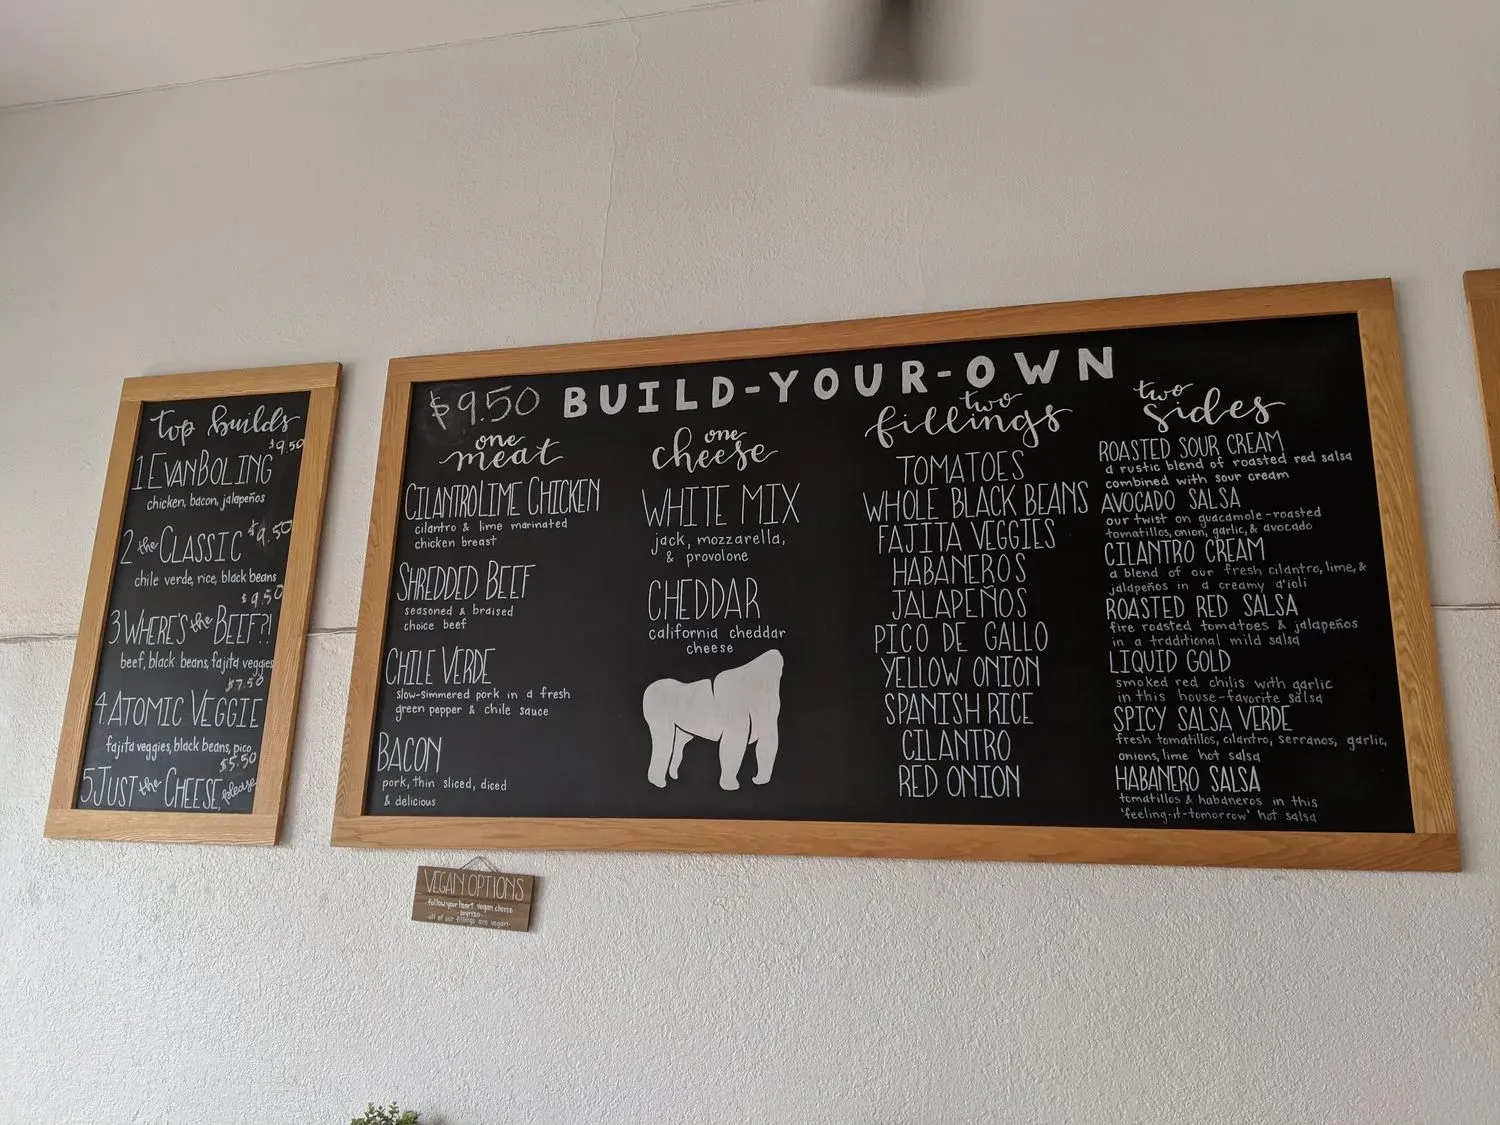 top builds
$9.50
1 EVANBOLING
chicken, bacon, jalapeños
2 the CLASSIC $9.50
chile verde, rice, black beans
$9.50
3 WHERE'S the BEEF?!
beef, black beans, fajita veggies
$7.50
4 ATOMIC VEGGIE
fajita veggies, black beans, pico
$5.50
5 JUST the CHEESE, please
$9.50 BUILD-YOUR-OWN
one
meat
CILANTRO LIME CHICKEN
cilantro & lime marinated
chicken breast
SHREDDED BEEF
seasoned & braised
choice beef
CHILE VERDE
slow-simmered pork in a fresh
green pepper & chile sauce
BACON
pork, thin sliced, diced
& delicious
one
cheese
WHITE MIX
jack, mozzarella,
& provolone
CHEDDAR
california cheddar
cheese
two
fillings
TOMATOES
WHOLE BLACK BEANS
FAJITA VEGGIES
HABANEROS
JALAPEÑOS
PICO DE GALLO
YELLOW ONION
SPANISH RICE
CILANTRO
RED ONION
two
sides
ROASTED SOUR CREAM
a rustic blend of roasted red salsa
combined with sour cream
AVOCADO SALSA
our twist on guacamole-roasted
tomatillos, onion, garlic, & avocado
CILANTRO CREAM
a blend of our fresh cilantro, lime, &
jalapeños in a creamy a'ioli
ROASTED RED SALSA
fire roasted tomatoes & jalapeños
in a traditional mild salsa
LIQUID GOLD
smoked red chilis with garlic
in this house-favorite salsa
SPICY SALSA VERDE
fresh tomatillos, cilantro, serranos, garlic,
onions, lime hot salsa
HABANERO SALSA
tomatillos & habaneros in this
'feeling-it-tomorrow' hot salsa
VEGAN OPTIONS
follow your heart vegan cheese
-soyrizo-
-all of our fillings are vegan-